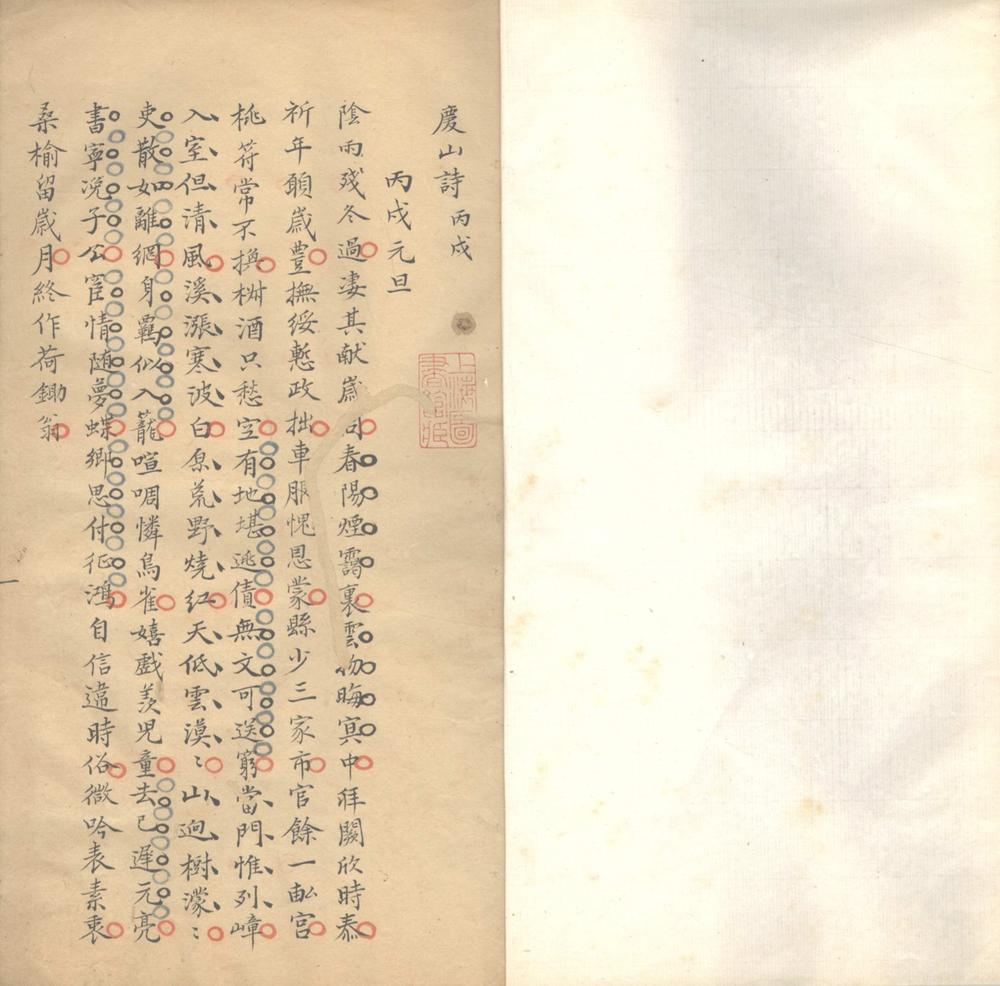 慶山詩 丙戌
丙戌元旦
陰雨殘冬過淒其献嵗回春陽煙靄裏雲物晦冥中拜闕欣時泰
祈年願嵗豐撫綏慙政拙車服愧恩蒙縣少三家市官餘一畝宮
桃符常不換椒酒只愁空有地堪逃債無文可送窮當門惟列嶂
入室但清風溪漲寒波白原荒野燒紅天低雲漠〻山逈樹濛〻
吏散如離網身羈似入籠喧啁憐鳥雀嬉戲羡児童去已遲元亮
書寧浼子公宦情随夢蝶鄉思付征鴻自信違時俗微吟表素衷
桑榆留嵗月終作荷鋤翁
上海圖書館藏